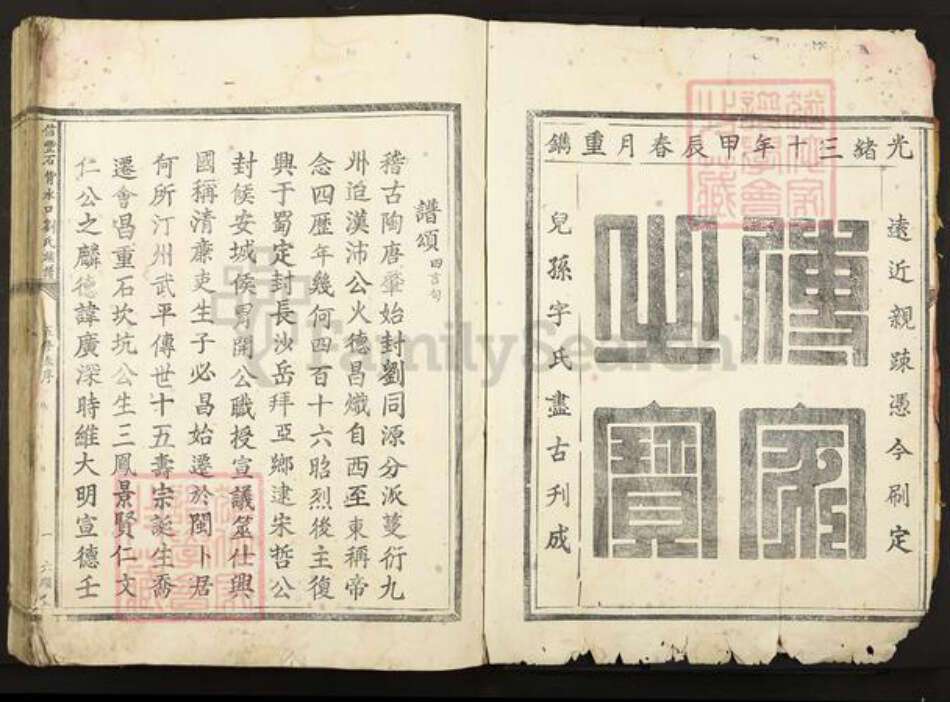 光緒三十年甲辰春月重鐫
遠近親疎憑今刷定
傳家
之寶
兒孫字氏盡古刊成
譜頌 四言句
稽古陶唐肇始封劉同源分派蔓衍九
州迨漢沛公火德昌熾自西至東稱帝
念四歷年幾何四百十六昭烈後主復
興于蜀定封長沙岳拜亞鄉逮宋哲公
封侯安城侯胃開公職授宣議筮仕興
國稱清廉吏生子必昌始遷於閩卜居
何所汀州武平傳世十五壽宗誕生喬
遷會昌重石坎坑公生三鳳景賢仁文
仁公之麟德諱廣深時維大明宣德壬
信豐石背水口劉氏族譜
FamilySearch